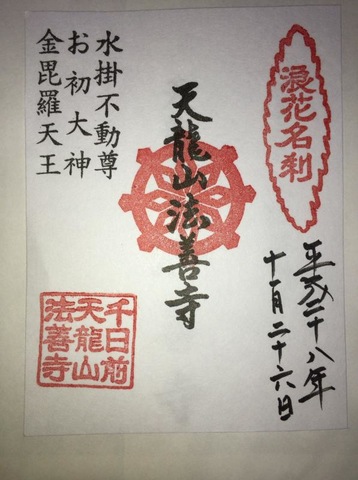 浪花名刹
平成二十八年
十一月二十六日
天龍山法善寺
水掛不動尊
お初大神
金毘羅天王
千日前
天龍山
法善寺